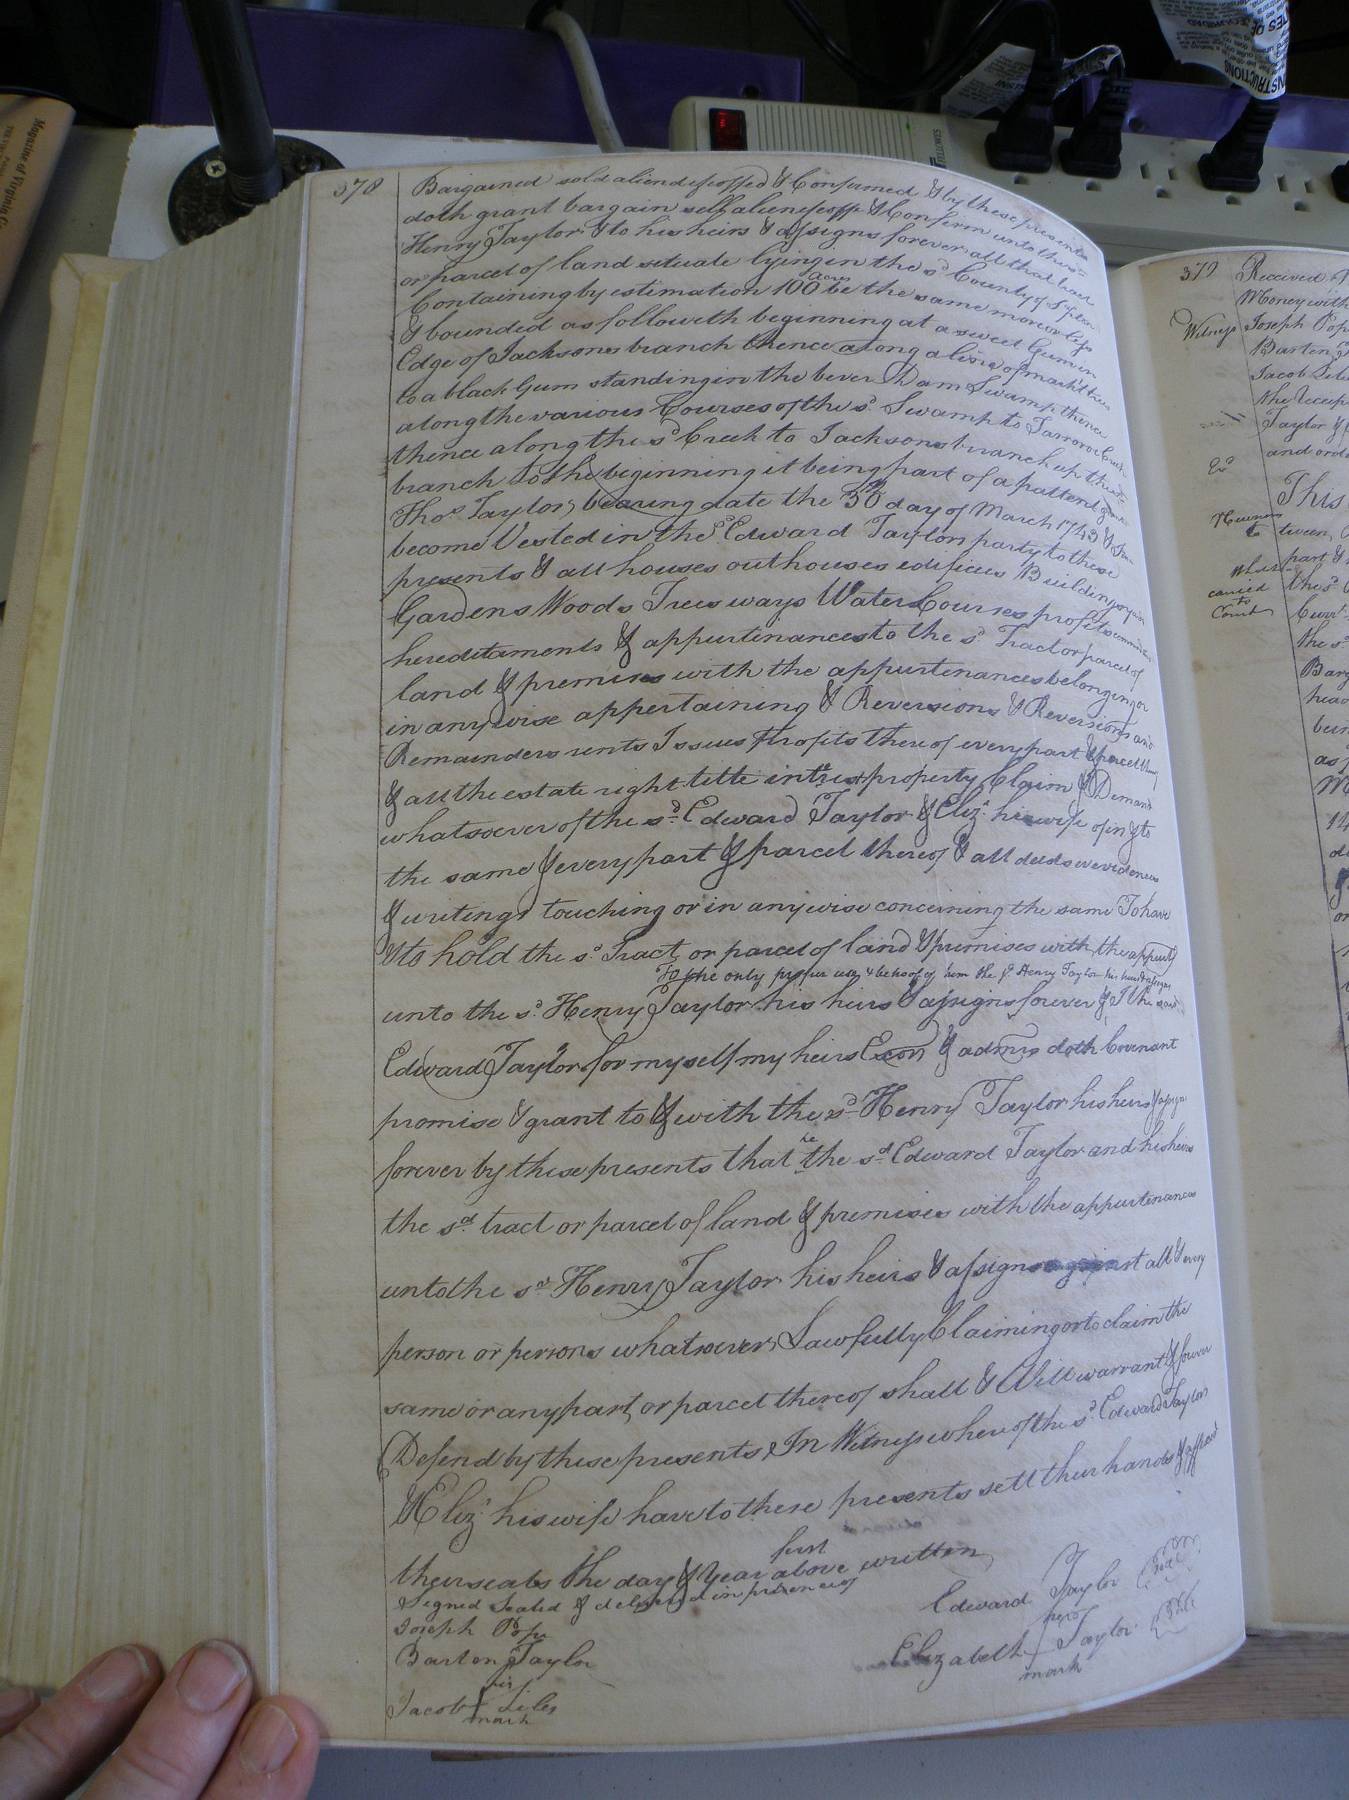 378
Bargained sold aliend efeoffed & Confirmed & by these presents
doth grant bargain sell alien efeoff & Confirm unto the sd
Henry Taylor & to his heirs & assigns forever all that tract
or parcel of land situate lying in the sd County of
Containing by estimation 100 acres be the same more or less
& bounded as followith beginning at a sweet Gum in
Edge of Jacksons branch thence along a line of markt trees
to a black Gum standing in the bever Dam Swamp thence
along the various Courses of the sd Swamp to Tarrorow Creek
thence along the sd Creek to Jacksons branch up the sd
branch to the beginning it being part of a pattend
Thos Taylor, bearing date the 30th day of March 1743 &
become Vested in the sd Edward Taylor party to these
presents & all houses outhouses edifices Buildings
Gardens Woods Trees ways Water Courses profits
hereditaments & appurtenances to the sd Tract or parcel of
land & premises with the appurtenances belonging or
in any wise appertaining & Reversions & Reversions and
Remainders rents Issues Profits there of every part & parcel
& all the estate right title intrest property Claim & Demand
whatsoever of the sd Edward Taylor & Eliza his wife of in & to
the same & every part & parcel thereof & all deeds evidences
& writings touching or in any wise concerning the same To have
& to hold the sd Tract or parcel of land & premises with the appurt
To the only proper use & behoof of him the sd Henry Taylor his heirs & assigns
unto the sd Henry Taylor his heirs & assigns forever & I the said
Edward Taylor for my self my heirs Exors & admrs doth Covenant
promise & grant to & with the sd Henry Taylor his heirs & assigns
forever by these presents that he the sd Edward Taylor and his heirs
the sd tract or parcel of land & premises with the appurtenances
unto the sd Henry Taylor his heirs & assigns against all & every
person or persons whatsoever Lawfully Claiming or to claim the
same or any part, or parcel thereof shall & Will warrant & forever
Defend by these presents, In Witness whereof the sd Edward Taylor
& Eliza his wife have to these presents sett their hands & affixed
their seals the day & Year first above written
Signed Sealed & delivered in presence of
Edward Taylor Seal
Joseph Pope
her
Elizabeth Taylor Seal
mark
Barten Taylor
his
Jacob Liles
mark
379
Received
Money with
Witness
Joseph Pop
Barten
Jacob Lile
the Receip
Taylor &
and ord
Exd
This
to
tween
part &
carried
to
Court
the sd
the s
Barg
bein
as
SURGE
Magazine of Virginia
INSTRUCTIONS